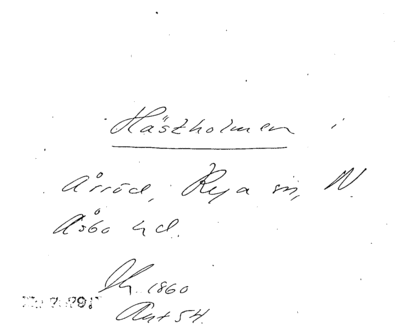 Hästholmen i
Årröd, Rya sn, N.
Åsbo hd.
1860
Ant 54.